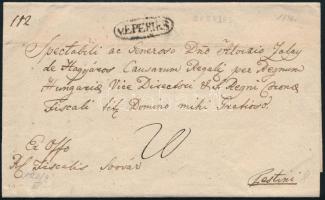 112
V. EPERIES
Spectabili ac Generoso Dno Aloisio
de Hagyáros Causarum Regali per Regnum
Hungariæ Vice Directori & S. Regni Coronæ
Fiscali titt Domino mihi Gratioso.
Ex Offo
Fiscalis Soovár
Pestini